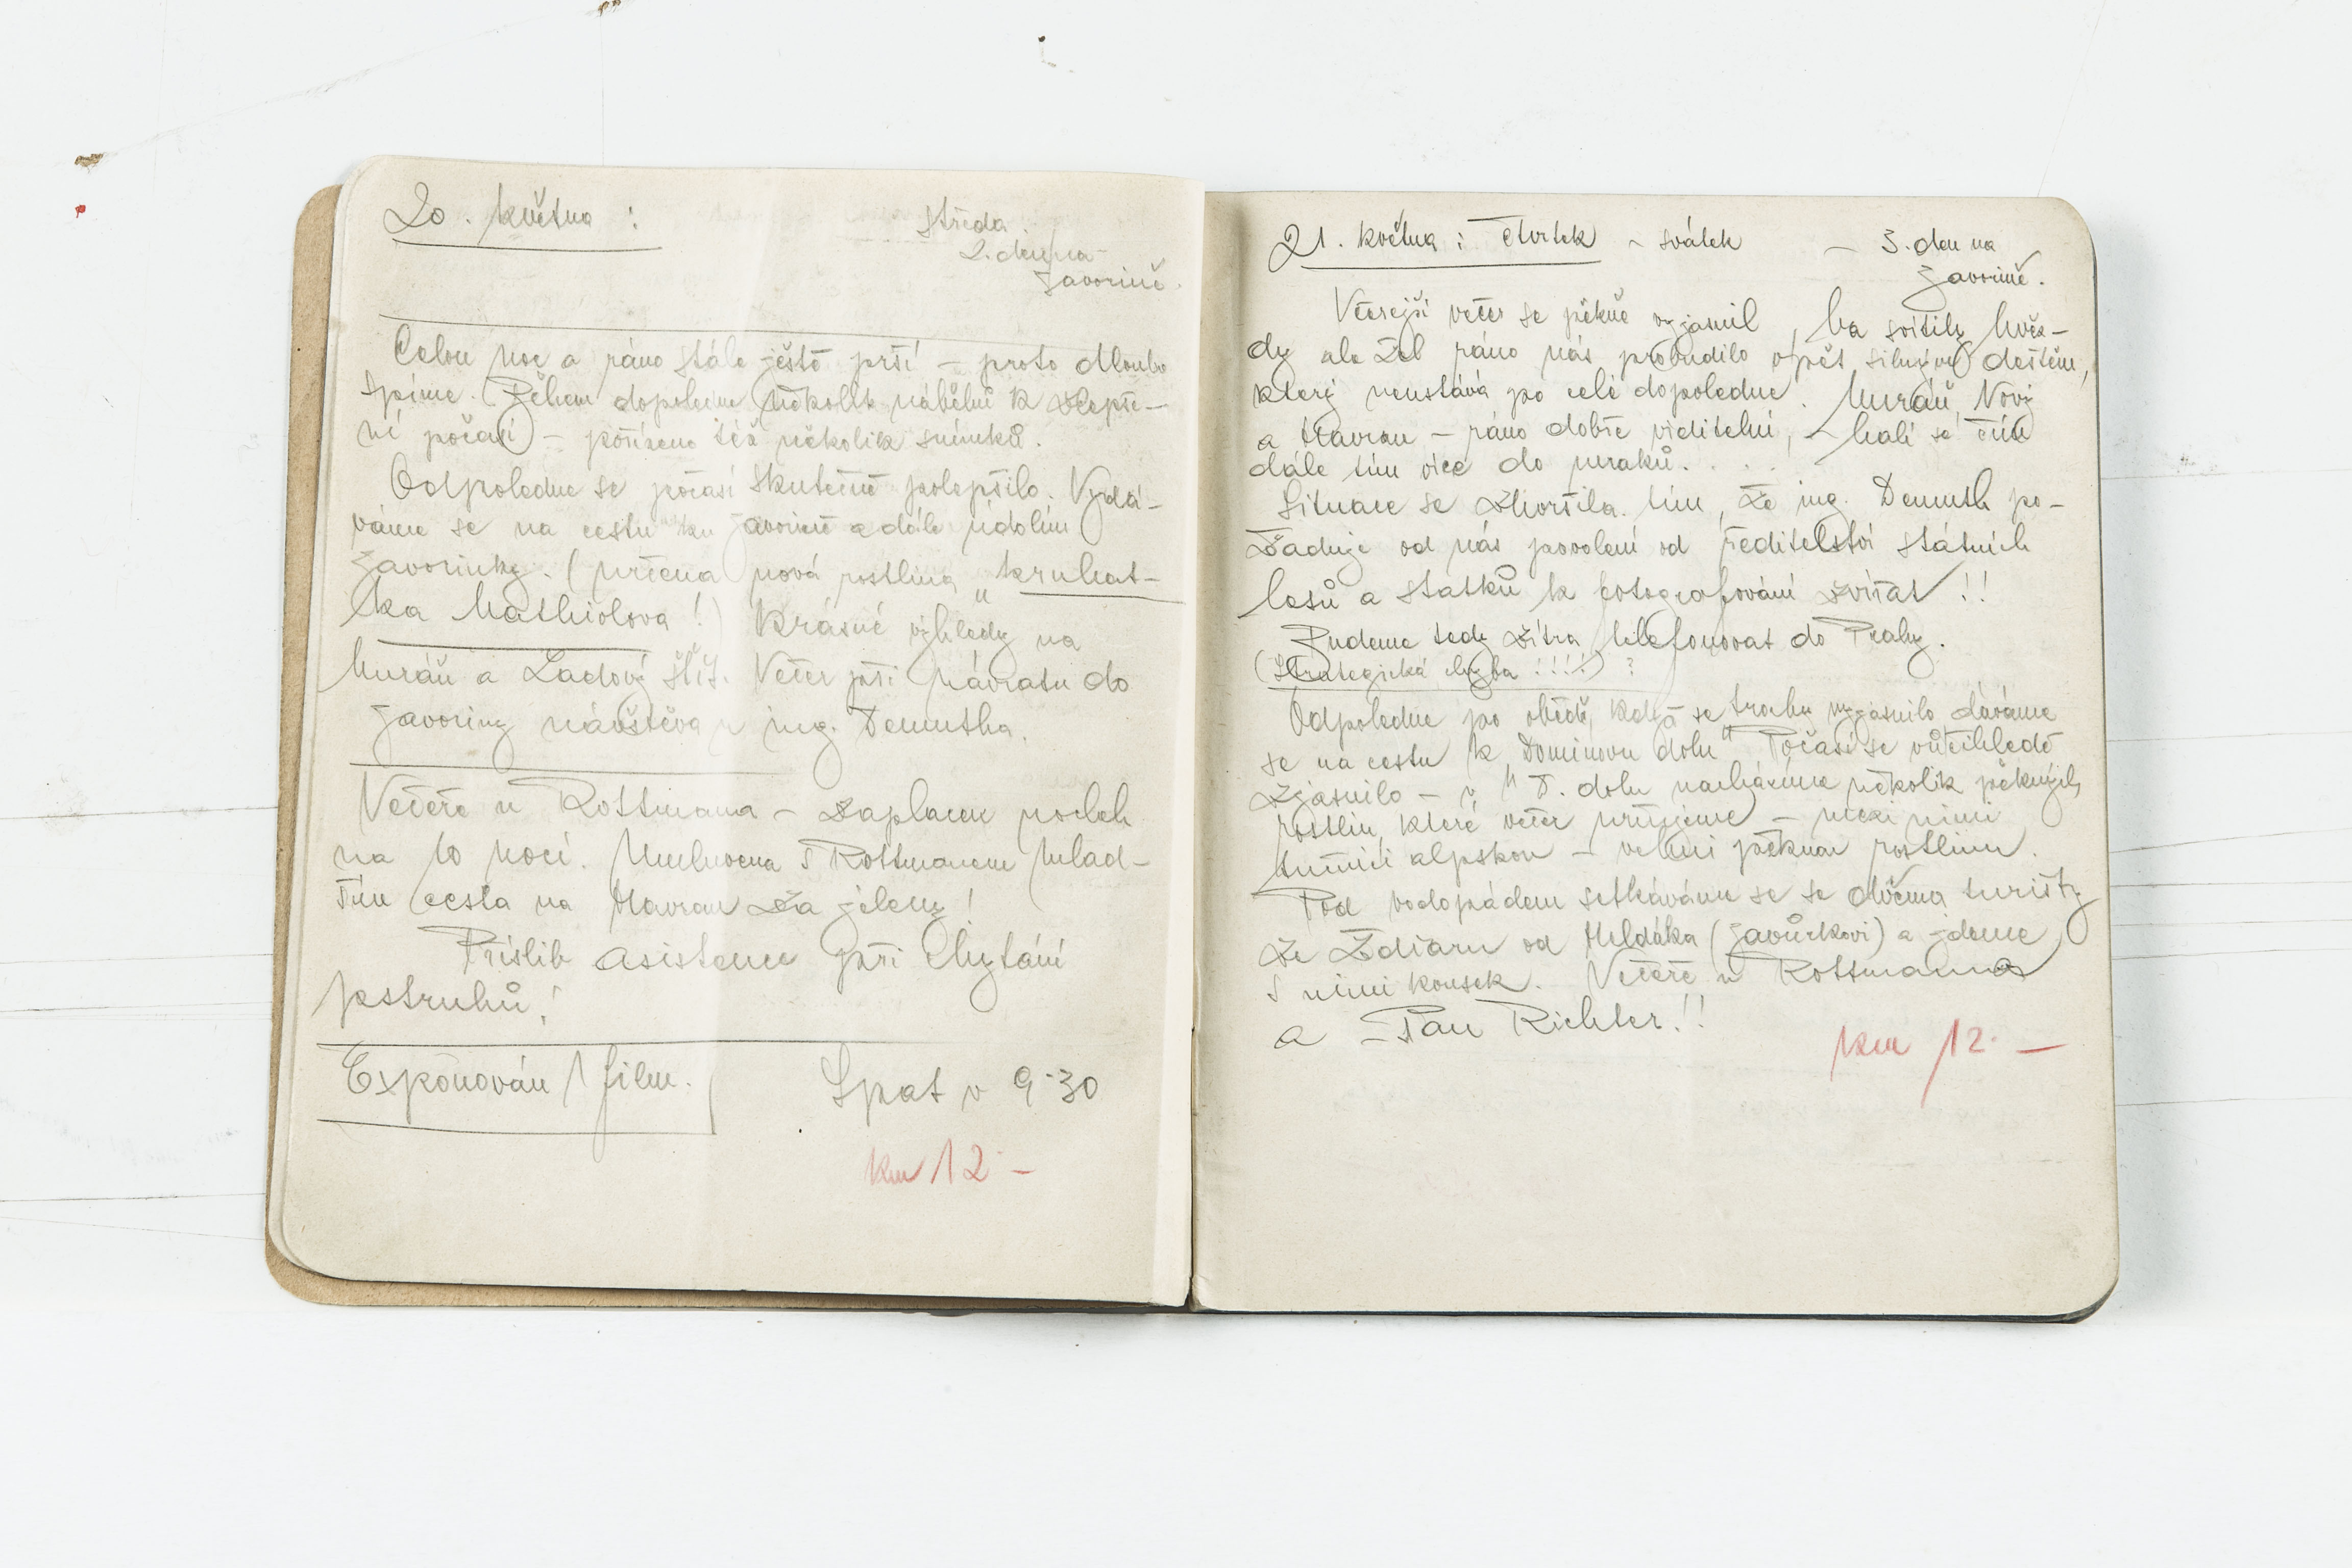 20. května :
středa
2. den na
Javorině.
Celou noc a ráno stále ještě prší – proto dlouho
spíme. Během dopoledne několik náběhů k zlepše-
ní počasí – pořízeno též několik snímků.
Odpoledne se počasí skutečně polepšilo. Vydá-
váme se na cestu ku Javorině a dále údolím
Javorinky. (určena nová rostlina „kruhat-
ka Mathiolova!") Krásné výhledy na
Muráň a Ladový štít. Večer při návratu do
Javoriny návštěva u ing. Demutha.
Večeře u Rottmana – zaplacen nocleh
na 10 nocí. Umluvena s Rottmanem mlad-
ším cesta na Havran za jeleny!
Příslib asistence při chytání
pstruhů!
Exponován 1 film.
Spat v 9·30
km 12·–
21. května : čtvrtek – svátek – 3. den na
Javorině.
Včerejší večer se pěkně vyjasnil, ba svítily hvěz-
dy ale žel ráno nás probudilo opět silným deštěm,
který neustává po celé dopoledne. Muráň, Nový
a Havran – ráno dobře viditelní, – halí se čím
dále tím více do mraků. . . .
Situace se zhoršila tím, že ing. Demuth po-
žaduje od nás povolení od ředitelství státních
lesů a statků k fotografování zvířat!!
Pudeme tedy zítra telefonovat do Prahy.
(Strategická chyba !!!!) ?
Odpoledne po obědě, když se trochu vyjasnilo, dáváme
se na cestu k „Dominovu dolu" Počasí se vůčihledě
zjasnilo – v „D. dolu nacházíme několik pěkných
rostlin, které večer určujeme – mezi nimi
tučnici alpskou – velmi pěknou rostlinu.
Pod vodopádem setkáváme se se dvěma turisty
ze Ždiaru od (Javůrkovi) a jdeme
s nimi kousek. Večeře u Rottmanna
a – Pan Richter!!
km 12·–